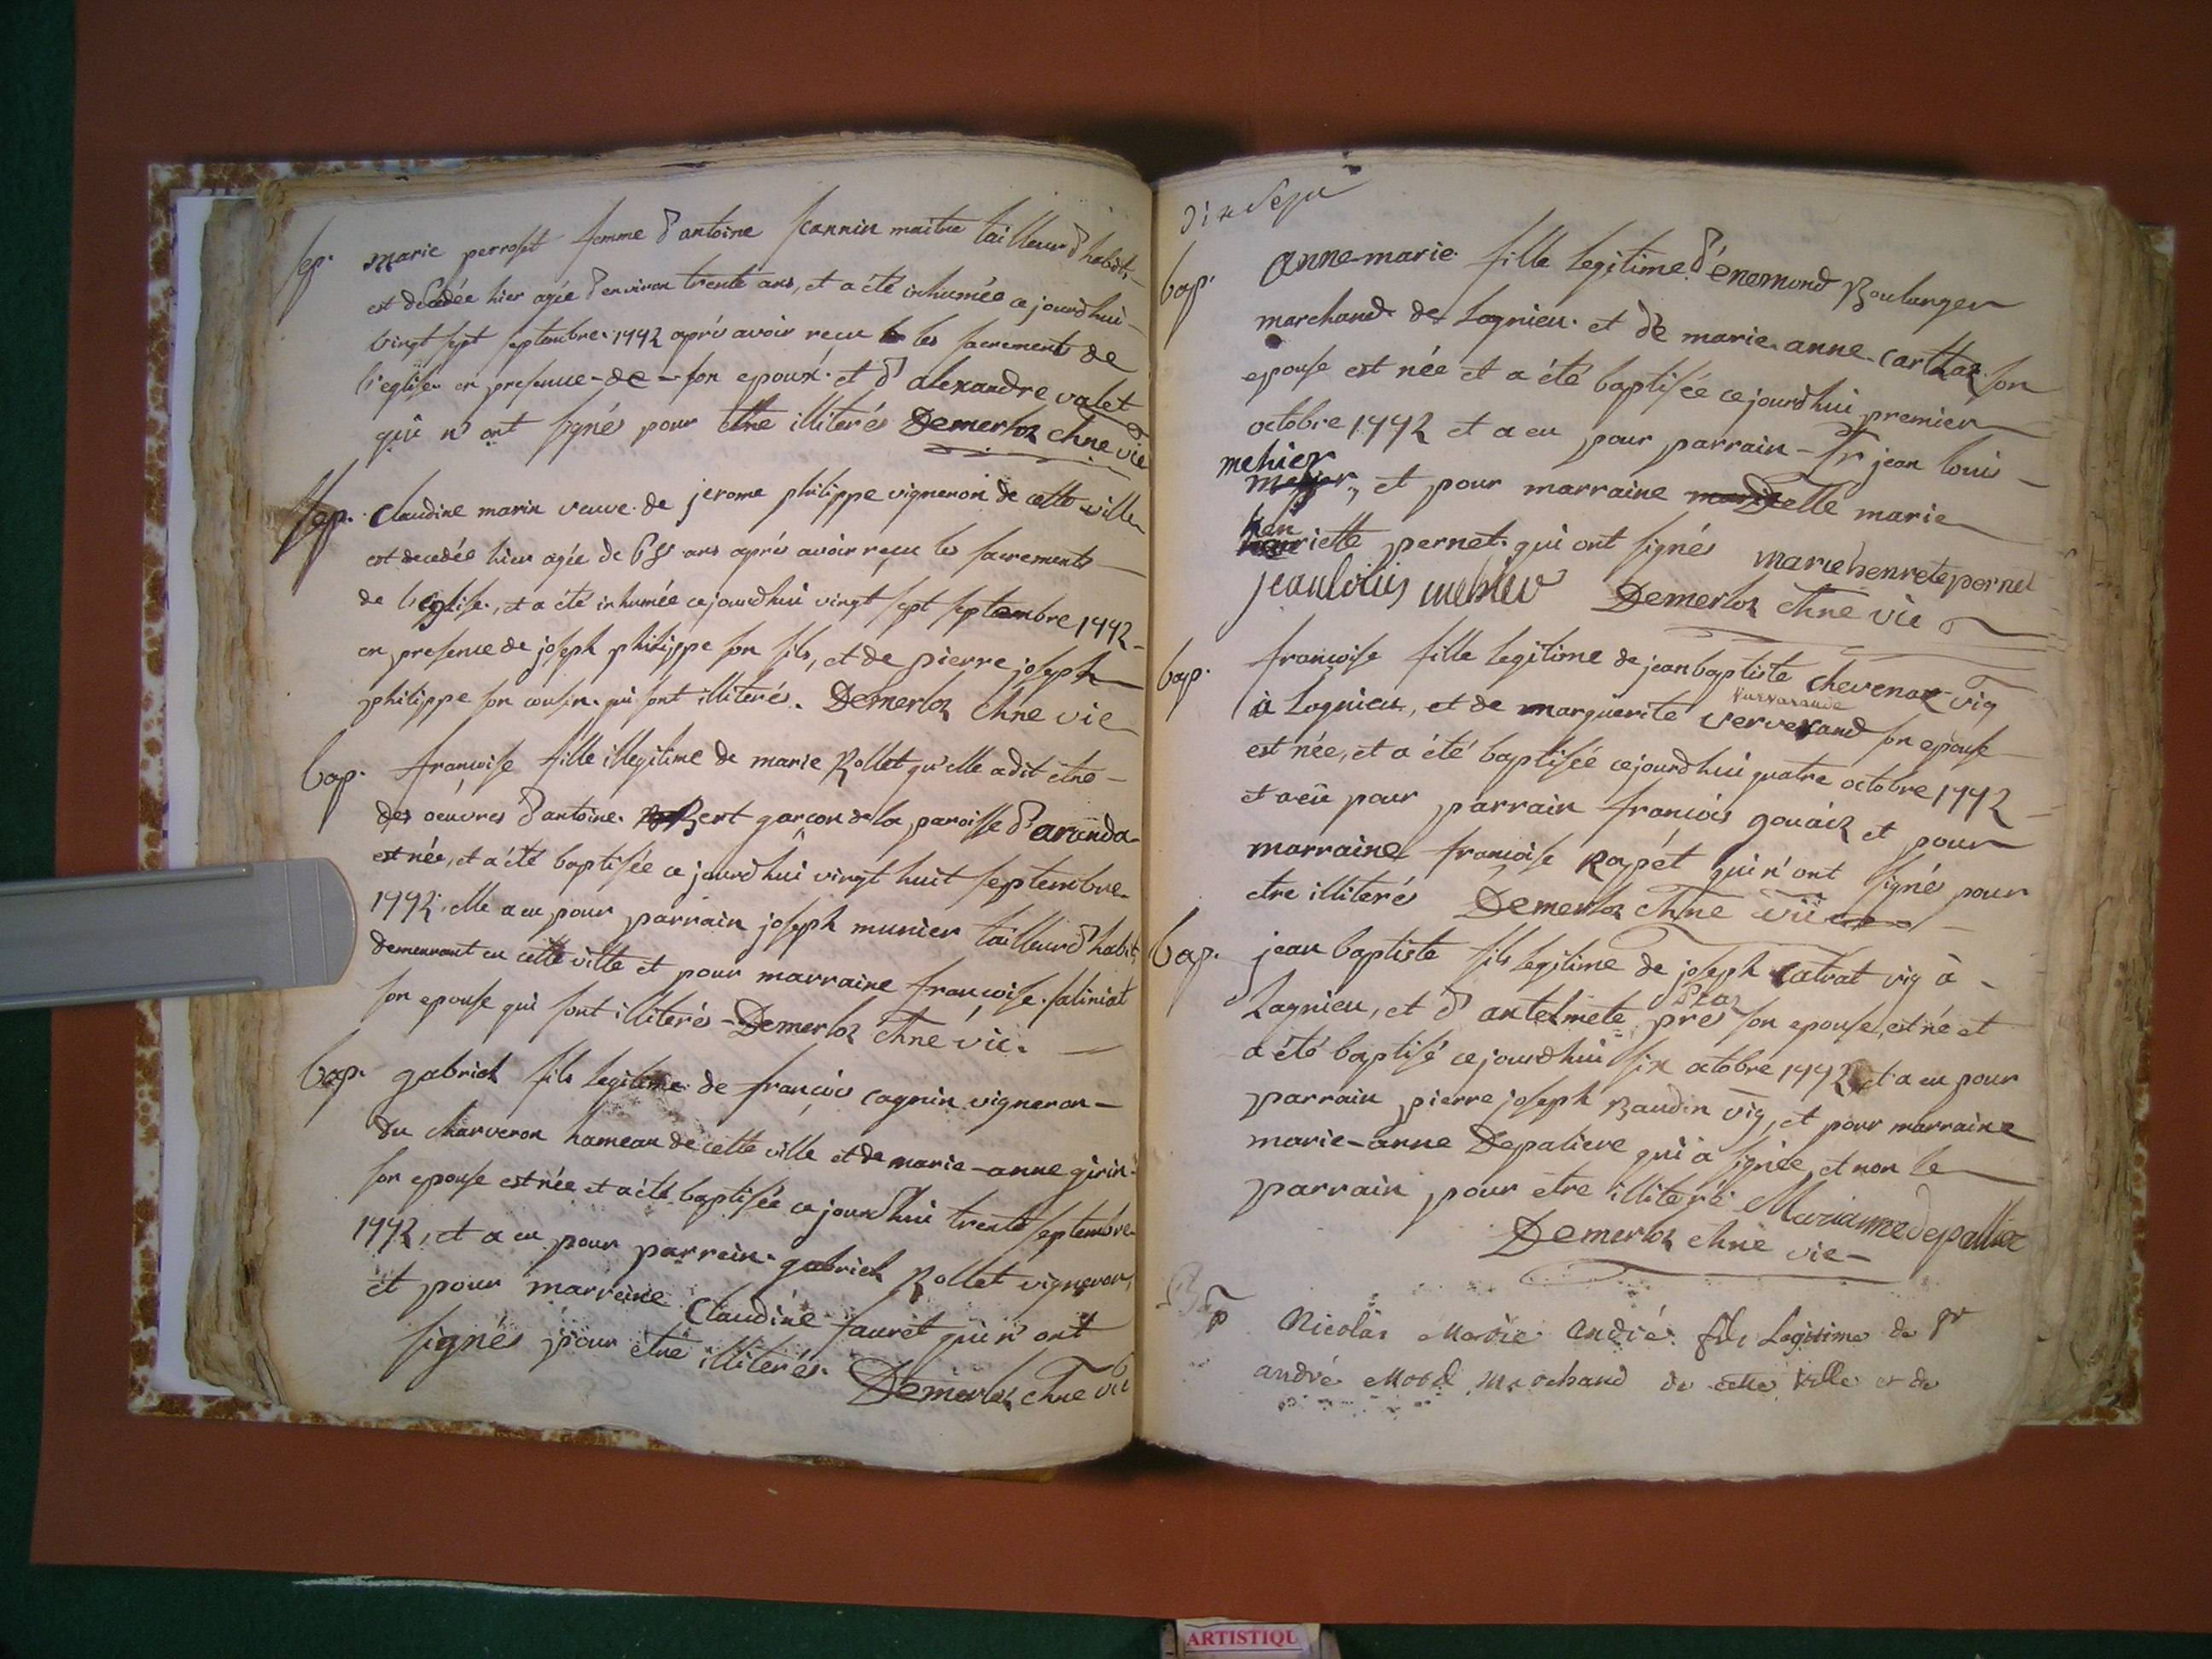 Sep. marie perroset femme d'antoine Jeannin maitre tailleur d'habit,
est decedée hier agée d'environ trente ans, et a été inhumée ce jourd'hui
vingt sept septembre 1772 après avoir reçu les sacrements de
l'eglise en presence de son epoux et d'alexandre valet
qui n'ont signés pour etre illiterés Demerloz chne vic
Sep. Claudine marin veuve de jerome philippe vigneron de cette ville
est decedée hier agée de ans après avoir reçu les sacrements
de l'eglise, et a été inhumée ce jourd'hui vingt sept septembre 1772
en presence de joseph philippe son fils, et de pierre joseph
philippe son cousin qui sont illiterés. Demerloz chne vic
bap. françoise fille illegitime de marie Rollet qu'elle a dit etre
des oeuvres d'antoine garçon de la paroisse d'aranda
est née, et a été baptisée ce jourd'hui vingt huit septembre
1772. elle a eu pour parrain joseph munier tailleur d'habit,
demeurant en cette ville et pour marraine françoise saliniat
son epouse qui sont illiterés - Demerloz chne vic.
bap. gabriel fils legitime de françois cagnin vigneron
du charveron hameau de cette ville et de marie-anne girin
son epouse est née et a été baptisée ce jourd'hui trente septembre
1772, et a eu pour parrein gabriel Rollet vigneron,
et pour marreine Claudine fauret qui n'ont
signés pour etre illiterés. Demerloz chne vic
dix sept
bap. Anne-marie fille legitime d'enemond Boulanger
marchand de Lagnieu et de marie anne carthaz son
epouse est née et a été baptisée ce jourd'hui premier
octobre 1772 et a eu pour parrain - Sr jean loui
mehier
, et pour marraine delle marie
hen
riette pernet qui ont signés marie henrete pernet
jean louis mehier Demerloz chne vic
bap. françoise fille legitime de jean baptiste chevenaz vig
à Lagnieu, et de margueriteververand son epouse
est née, et a été baptisée ce jourd'hui quatre octobre 1772
et a eu pour parrain françois gouaiz et pour
marraine françoise Rapét qui n'ont signés pour
etre illiterés Demerloz chne vic
bap. jean baptiste fils legitime de joseph Catrat vig à
Lagnieu, et d'antelmete pres son epouse, est né et
a été baptisé ce jourd'hui six octobre 1772 et a eu pour
parrain pierre joseph Baudin vig, et pour marraine
marie-anne Depaliere qui a signée, et non le
parrain pour etre illiteré. Marianne depallier
Demerloz chne vic
Bap Nicolas Marie André fils Legitime de Sr
andré Morel Marchand de cette ville et de
ARTISTIQU